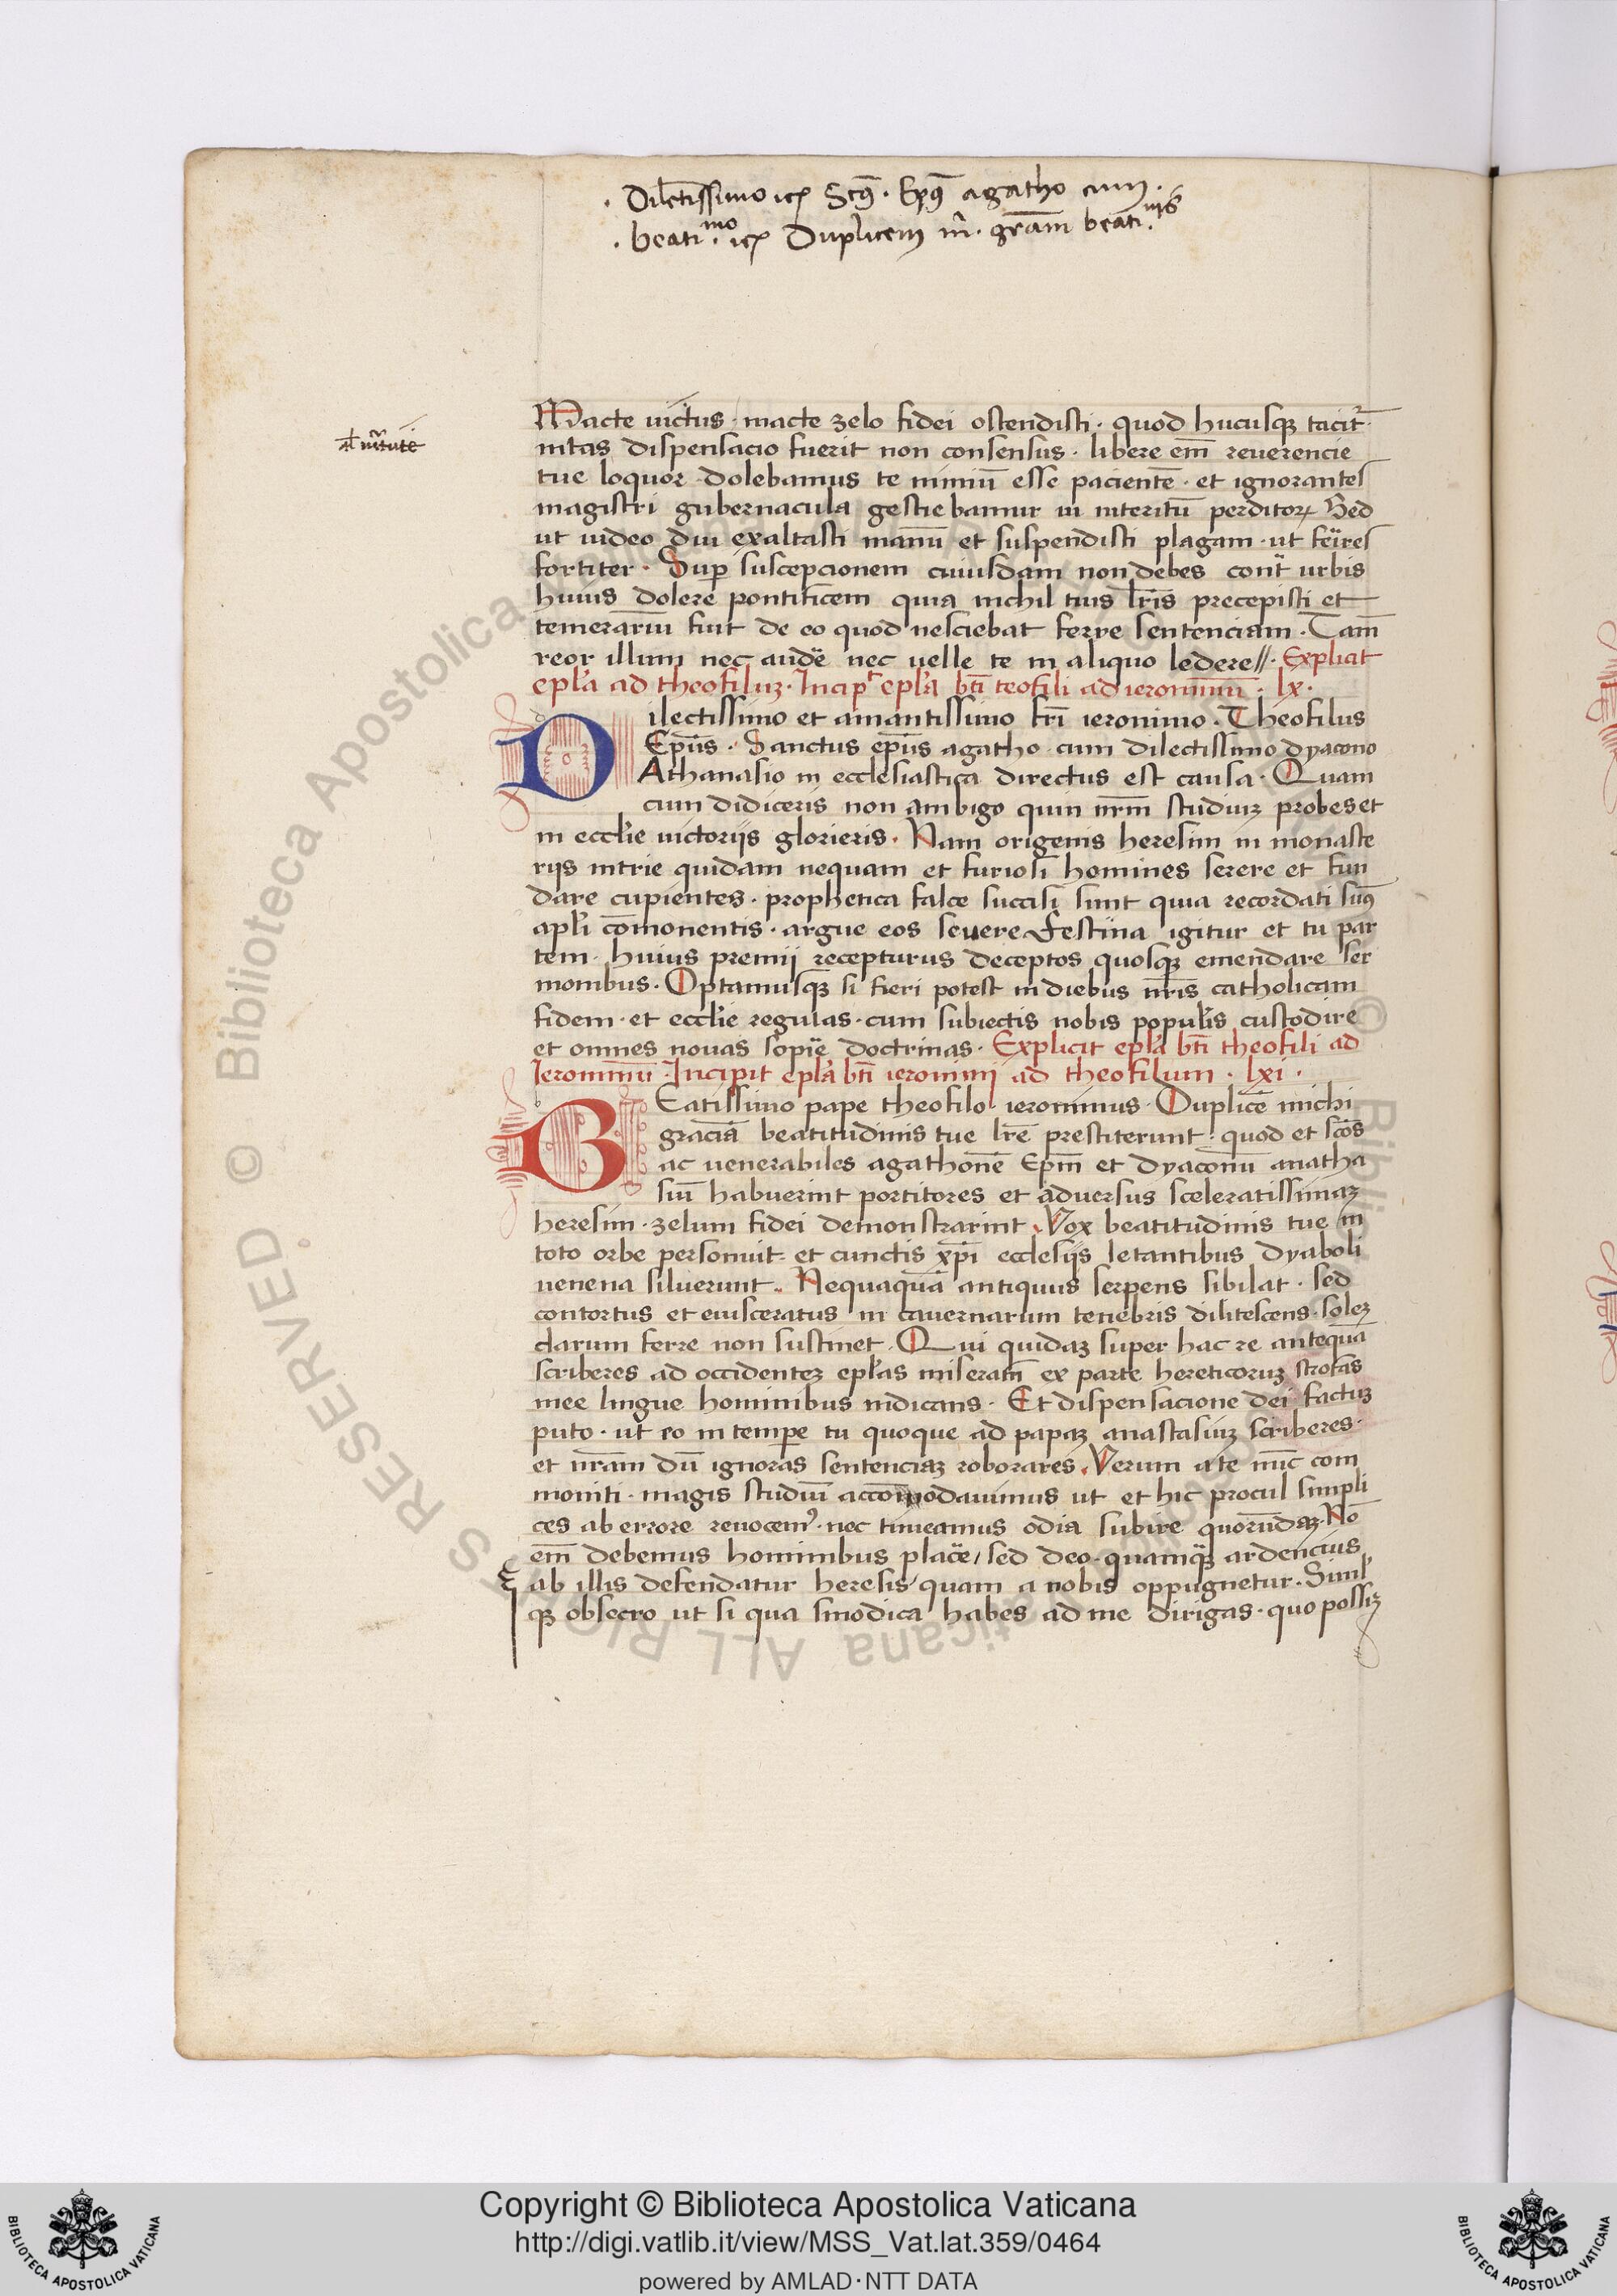 · Dilectissimo ie₎ Scꝰ · Epꝰ agatho cum ·
· beatimo · ie₎ Duplicem m̄ · grām beati.nis
al' uirtute
Macte uictus · macte zelo fidei ostendisti · quod hucusqꝫ tacit̄
nitas dispensacio fuerit non consensus · libere em̄ reuerencie
tue loquor · dolebamus te nimiū esse pacientē · et ignorantes
magistri gubernacula gestiebamur in interitū perditoꝝ Sed
ut uideo diu exaltasti manū et suspendisti plagam · ut fe͞ires
fortiter · Suꝑ suscepcionem cuiusdam non debes cont̄ urbis
huius dolere pontificem quia nichil tuis lr̄is precepisti et
temerariū fuit de eo quod nesciebat ferre sentenciam · Tam̄
reor illum nec aud̄e nec uelle te in aliquo ledere // · Explicit
epl̄a ad theofiluꝫ · Incipt epl̄a bt̄i teofili ad ieronimū · lx ·
Dilectissimo et amantissimo fr̄i ieronimo · Theofilus
Ep̄us · Sanctus ep̄us agatho · cum dilectissimo dyacono
Athanasio in ecclesiastica directus est causa · Quam
cum didiceris non ambigo quin nr̄m studiuꝫ probes et
in eccl̄ie uictoriis glorieris · Nam origenis heresim in monaste
riis nitrie quidam nequam et furiosi homines serere et fun
dare cupientes · prophetica falce succisi sunt quia recordati sum9
apl̄i cōmonentis · argue eos seuere Festina igitur et tu par
tem · huius premii recepturus deceptos quosqꝫ emendare ser
monibus · Optamusqꝫ si fieri potest in diebus nr̄is catholicam
fidem · et eccl̄ie regulas · cum subiectis nobis popul̄is custodire
et omnes nouas sopi͞e doctrinas · Explicit epl̄a bt̄i theofili ad
Ieronimū · Incipit epl̄a bt̄i ieronimi ad theofilum · lxi ·
BEatissimo pape theofilo ieronimus · Duplicē michi
graciā beatitudinis tue lr̄e prestiterunt : quod et sc̄os
ac uenerabiles agathonē Ep̄m et dyaconū anatha
siū habuerint portitores et aduersus sceleratissimaꝫ
heresim · zelum fidei demonstrarint · Vox beatitudinis tue in
toto orbe personuit · et cunctis xp̄i ecclesiis letantibus dyaboli
uenena siluerunt .. Nequaquā antiquus serpens sibilat · sed
contortus et euisceratus in cauernarum tenebris dilitescens · soleꝫ
clarum ferre non sustinet · Qui quidaꝫ super hac re antequā
scriberes ad occidenteꝫ epl̄as miseram̄ ex parte hereticoruꝫ strofas
mee lingue hominibus indicans · Et dispensacione dei factuꝫ
puto · ut eo in tempe tu quoque ad papaꝫ anastasiuꝫ scriberes ·
et nr̄am dū ignoras sentenciaꝫ roborares · Verum a te nūc com
moniti · magis studiū accōmodauimus ut et hic procul simpli
ces ab errore reuocem9 · nec timeamus odia subire quorūdaꝫ · Nō
em̄ debemus hominibus plac̄e / sed deo · quamqꝫ ardencius
ab illis defendatur heresis / quam a nobis oppugnetur · Simul
qꝫ obsecro ut si qua sinodica habes ad me dirigas · quo possiꝫ
© Biblioteca Apostolica Vaticana ALL RIGHTS RESERVED
Copyright © Biblioteca Apostolica Vaticana
http://digi.vatlib.it/view/MSS_Vat.lat.359/0464
powered by AMLAD·NTT DATA
BIBLIOTECA APOSTOLICA VATICANA
BIBLIOTECA APOSTOLICA VATICANA